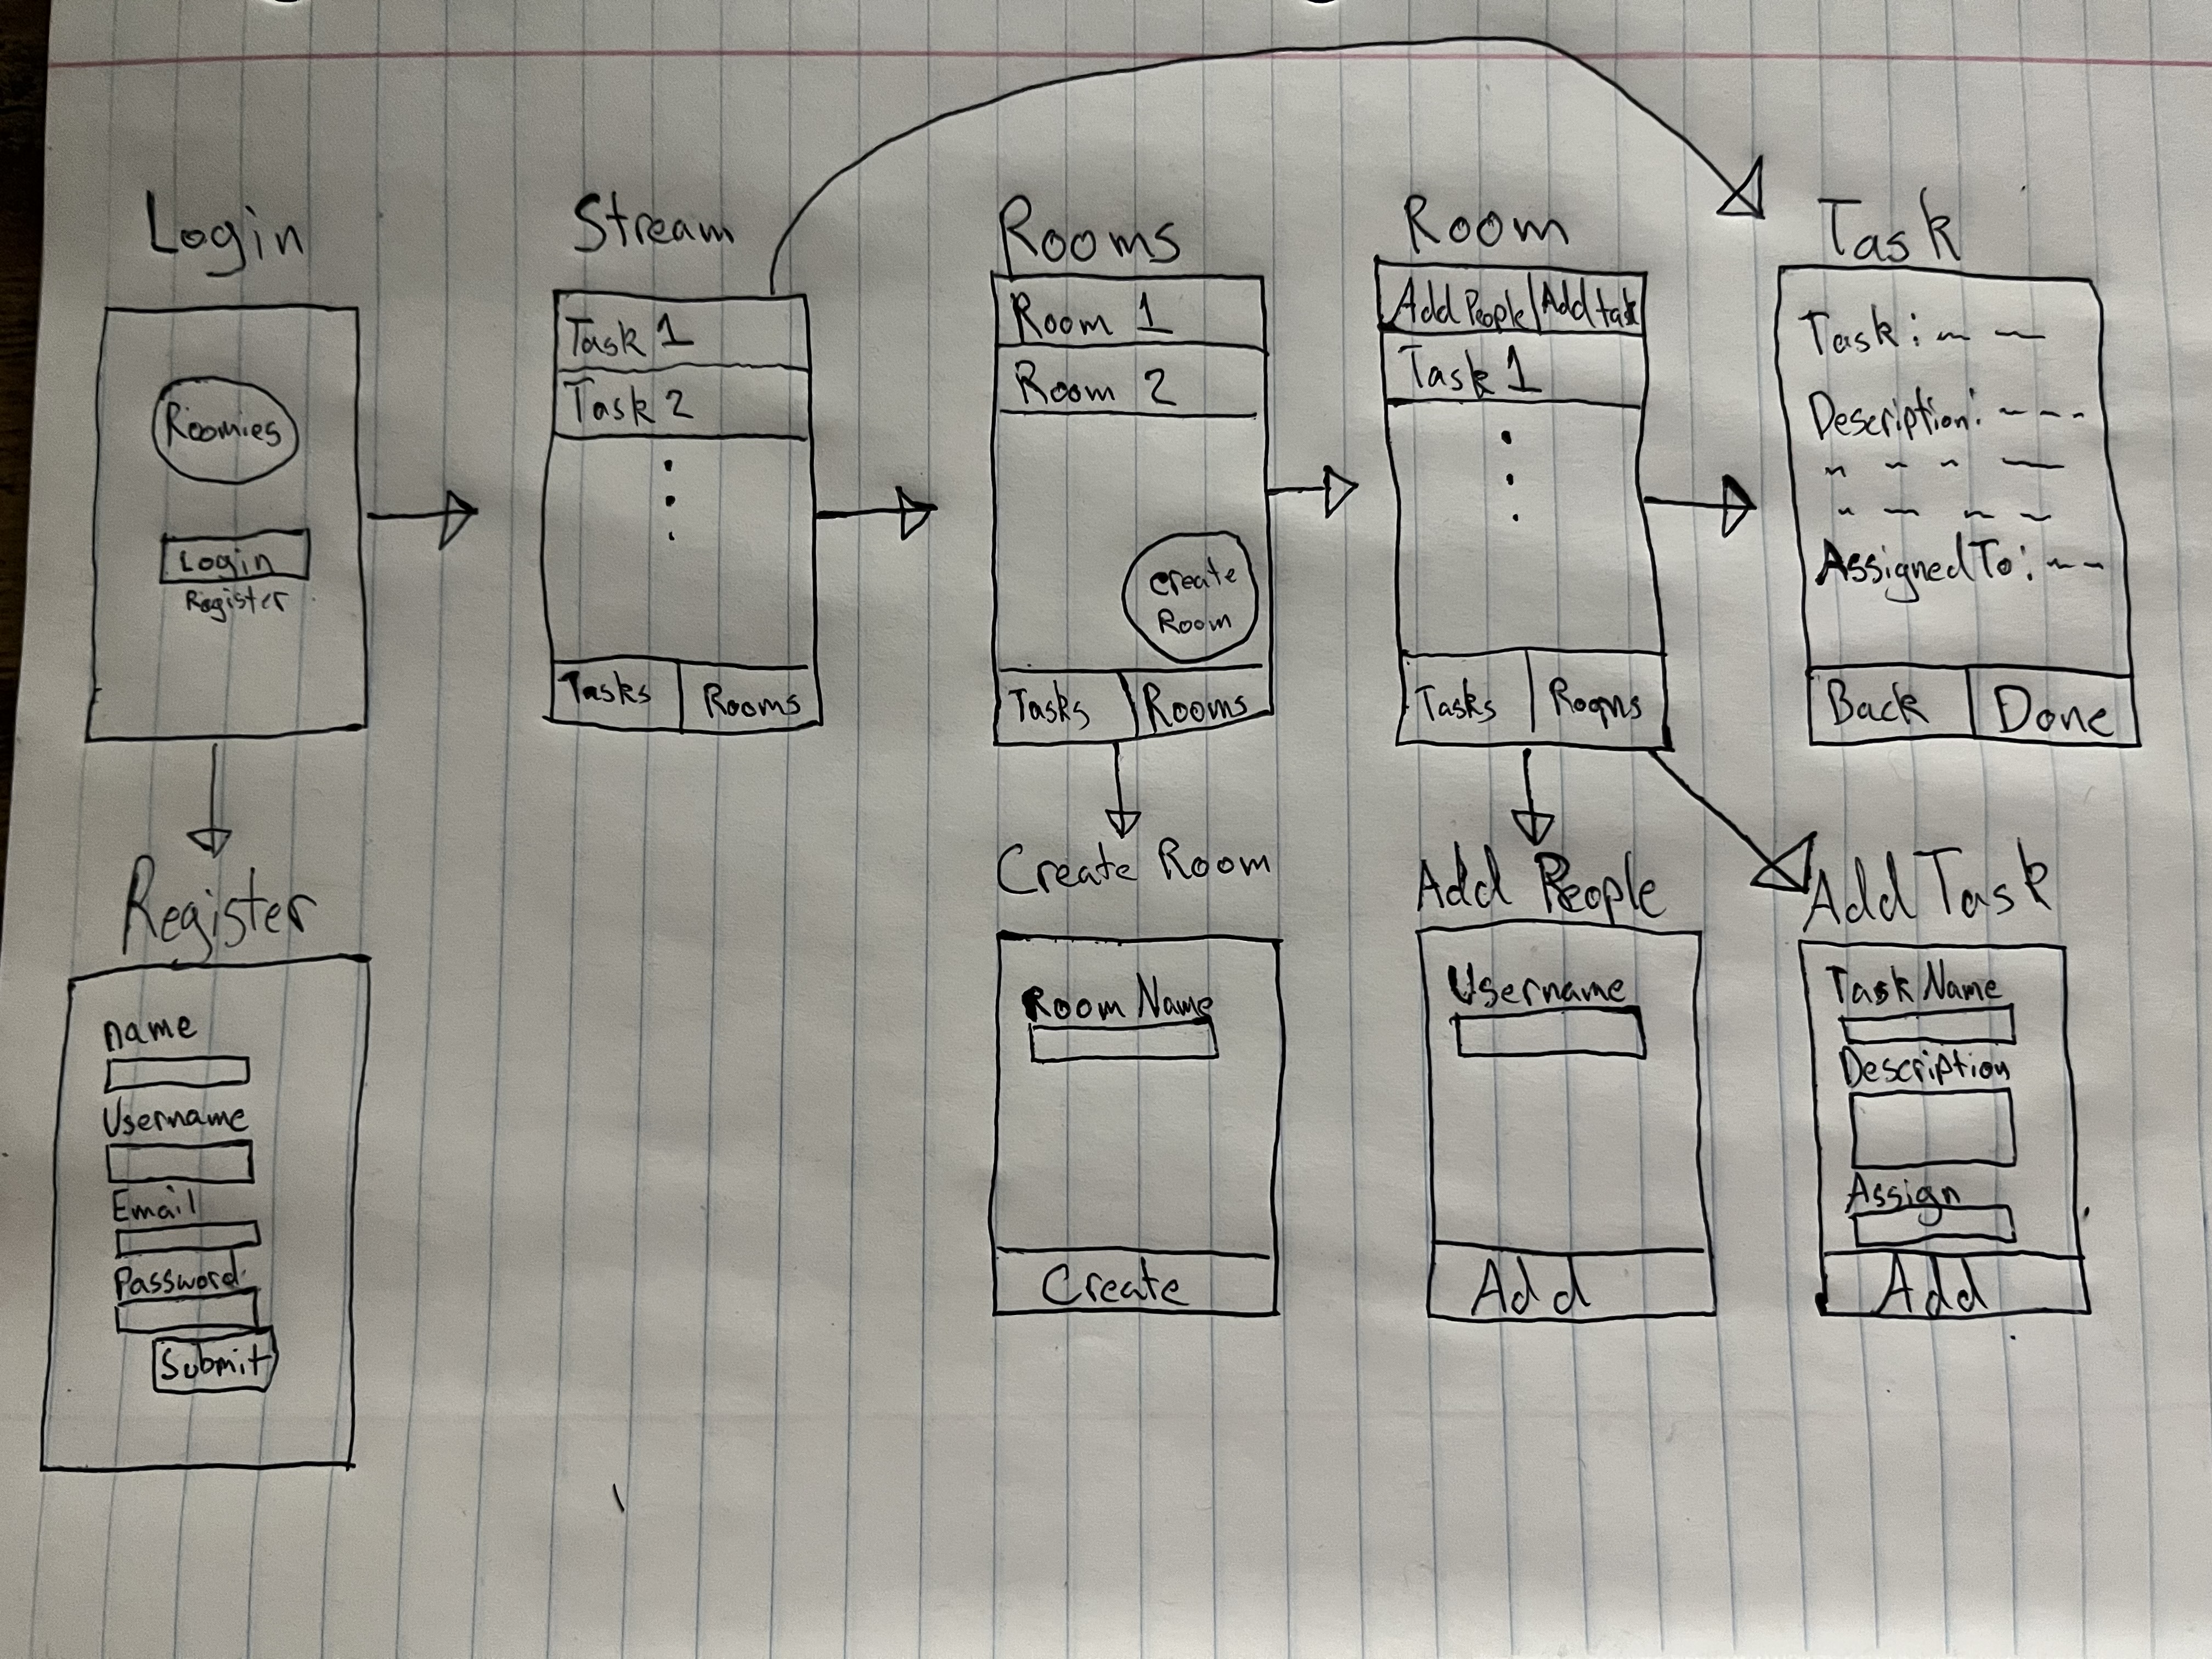 Login
Roomies
Login
Register
Stream
Task 1
Task 2
Tasks Rooms
Rooms
Room 1
Room 2
create
Room
Tasks Rooms
Room
Add People Add task
Task 1
Tasks Rooms
Task
Task:
Description:
Assigned To:
Back Done
Register
name
Username
Email
Password
Submit
Create Room
Room Name
Create
Add People
Username
Add
Add Task
Task Name
Description
Assign
Add